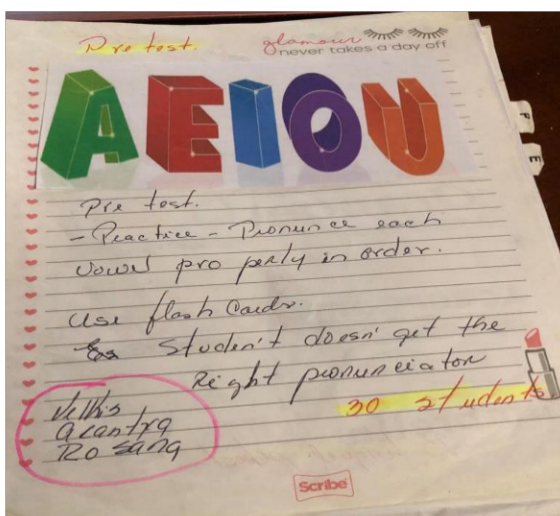 Pre test.
glamour
never takes a day off
AEIOU
F
E
Pre test.
- Practice - Pronunce each
vowel pro perly in order.
Use flash Cards.
Studen't doesn' get the
Right pronunciator
30 students
Rosang
Scribe